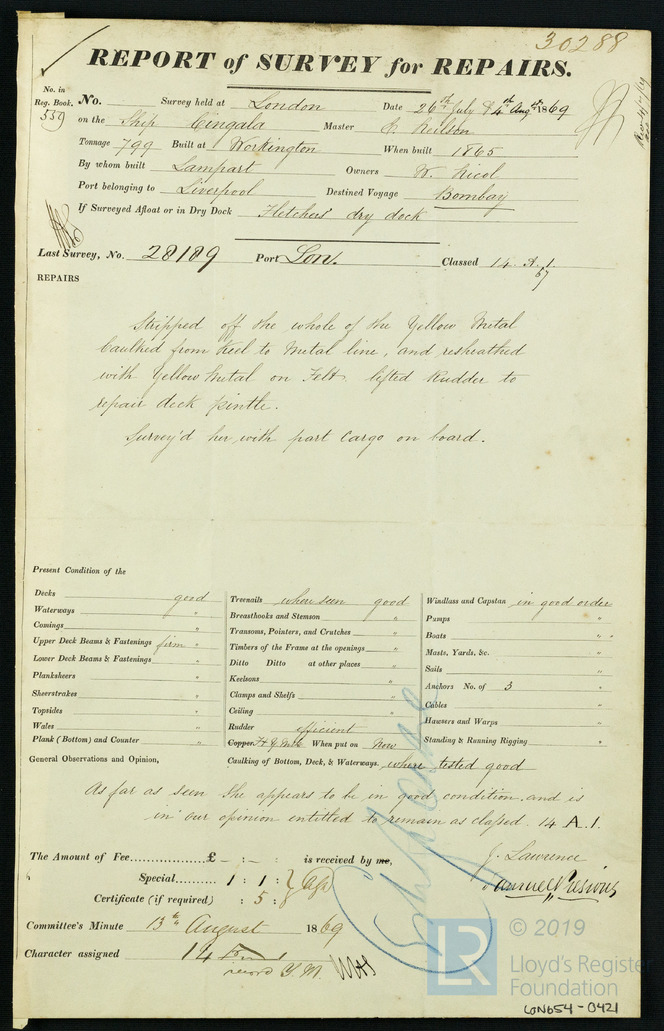 30288
REPORT of SURVEY for REPAIRS.
No. in
Reg. Book.
559
No. Survey held at London Date 26th July & 4th Augst 1869
on the Ship Cingala Master Neilson
Tonnage 799 Built at Workington When built 1865
By whom built Lamport Owners W. Nicol
Port belonging to Liverpool Destined Voyage Bombay
If Surveyed Afloat or in Dry Dock Fletchers' dry dock
Last Survey, No. 28189 Port Lon. Classed 14 A.1.
67
REPAIRS
Stripped off the whole of the Yellow Metal
Caulked from Keel to Metal line, and resheathed
with Yellow Metal on Felt lifted Rudder to
repair deck pintle.
Survey'd her with part Cargo on board.
Present Condition of the
Decks good
Waterways "
Comings "
Upper Deck Beams & Fastenings firm "
Lower Deck Beams & Fastenings "
Planksheers "
Sheerstrakes "
Topsides "
Wales "
Plank (Bottom) and Counter "
Treenails where seen good
Breasthooks and Stemson "
Transoms, Pointers, and Crutches "
Timbers of the Frame at the openings "
Ditto Ditto at other places "
Keelsons "
Clamps and Shelfs "
Ceiling "
Rudder efficient
Copper. F & Y Metl When put on Now
Caulking of Bottom, Deck, & Waterways. where tested good
Windlass and Capstan in good order
Pumps "
Boats " "
Masts, Yards, &c. "
Sails "
Anchors No. of 3 "
Cables "
Hawsers and Warps "
Standing & Running Rigging "
General Observations and Opinion,
As far as seen She appears to be in good condition, and is
in our opinion entitled to remain as classed. 14 A.1.
The Amount of Fee £ - : - : is received by me,
Special 1 : 1 :
Certificate (if required) : 5 :
J. Lawrence
Samuel Preswich
Committee's Minute 13th August 1869
Character assigned 14
record Y.M.
LR
© 2019
Lloyd's Register
Foundation
LON654-0421